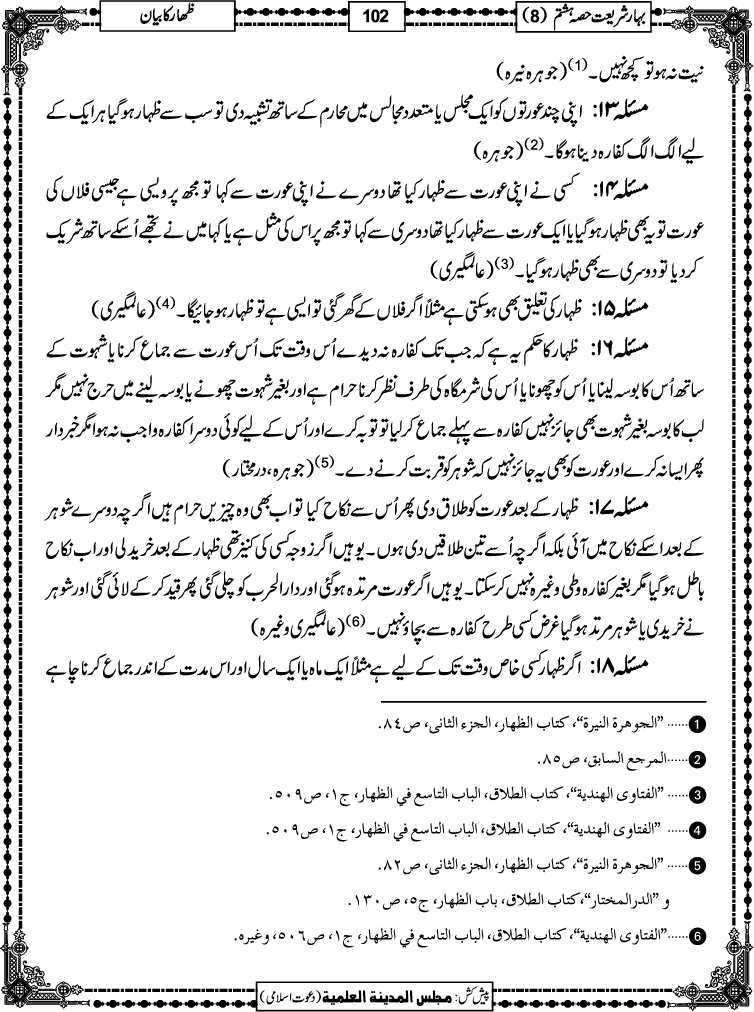 بہارِ شریعت حصہ ہشتم (8)
102
ظہار کا بیان
نیت نہ ہو تو کچھ نہیں۔(1) (جوہرہ نیرہ)
مسئلہ ۱۳: اپنی چند عورتوں کو ایک مجلس یا متعدد مجالس میں محارم کے ساتھ تشبیہ دی تو سب سے ظہار ہو گیا ہر ایک کے
لیے الگ الگ کفارہ دینا ہوگا۔(2) (جوہرہ)
مسئلہ ۱۴: کسی نے اپنی عورت سے ظہار کیا تھا دوسرے نے اپنی عورت سے کہا تو مجھ پر ویسی ہے جیسی فلاں کی
عورت تو یہ بھی ظہار ہو گیا یا ایک عورت سے ظہار کیا تھا دوسری سے کہا تو مجھ پر اس کی مثل ہے یا کہا میں نے تجھے اُسکے ساتھ شریک
کر دیا تو دوسری سے بھی ظہار ہو گیا۔(3) (عالمگیری)
مسئلہ ۱۵: ظہار کی تعلیق بھی ہوسکتی ہے مثلاً اگر فلاں کے گھر گئی تو ایسی ہے تو ظہار ہو جائیگا۔(4) (عالمگیری)
مسئلہ ۱۶: ظہار کا حکم یہ ہے کہ جب تک کفارہ نہ دیدے اُس وقت تک اُس عورت سے جماع کرنا یا شہوت کے
ساتھ اُس کا بوسہ لینا یا اُس کو چھونا یا اُس کی شرمگاہ کی طرف نظر کرنا حرام ہے اور بغیر شہوت چھونے یا بوسہ لینے میں حرج نہیں مگر
لب کا بوسہ بغیر شہوت بھی جائز نہیں کفارہ سے پہلے جماع کر لیا تو توبہ کرے اور اُس کے لیے کوئی دوسرا کفارہ واجب نہ ہوا مگر خبردار
پھر ایسا نہ کرے اور عورت کو بھی یہ جائز نہیں کہ شوہر کو قربت کرنے دے۔(5) (جوہرہ، درمختار)
مسئلہ ۱۷: ظہار کے بعد عورت کو طلاق دی پھر اُس سے نکاح کیا تو اب بھی وہ چیزیں حرام ہیں اگرچہ دوسرے شوہر
کے بعد اسکے نکاح میں آئی بلکہ اگرچہ اُسے تین طلاقیں دی ہوں۔ یوہیں اگر زوجہ کسی کی کنیز تھی ظہار کے بعد خرید لی اور اب نکاح
باطل ہو گیا مگر بغیر کفارہ وطی وغیرہ نہیں کر سکتا۔ یوہیں اگر عورت مرتدہ ہوگئی اور دارالحرب کو چلی گئی پھر قید کر کے لائی گئی اور شوہر
نے خریدی یا شوہر مرتد ہو گیا غرض کسی طرح کفارہ سے بچاؤ نہیں۔(6) (عالمگیری وغیرہ)
مسئلہ ۱۸: اگر ظہار کسی خاص وقت تک کے لیے ہے مثلاً ایک ماہ یا ایک سال اور اس مدت کے اندر جماع کرنا چاہے
1 ...... ”الجوهرة النيرة“، كتاب الظهار، الجزء الثانى، ص٨٤.
2 ......المرجع السابق، ص٨٥.
3 ...... ”الفتاوى الهندية“، كتاب الطلاق، الباب التاسع في الظهار، ج١، ص٥٠٩.
4 ...... ”الفتاوى الهندية“، كتاب الطلاق، الباب التاسع في الظهار، ج١، ص٥٠٩.
5 ...... ”الجوهرة النيرة“، كتاب الظهار، الجزء الثانى، ص٨٢.
و ”الدرالمختار“، كتاب الطلاق، باب الظهار، ج٥، ص١٣٠.
6 ......”الفتاوى الهندية“، كتاب الطلاق، الباب التاسع في الظهار، ج١، ص٥٠٦، وغيره.
پیش کش: مجلس المدینة العلمیة (دعوت اسلامی)